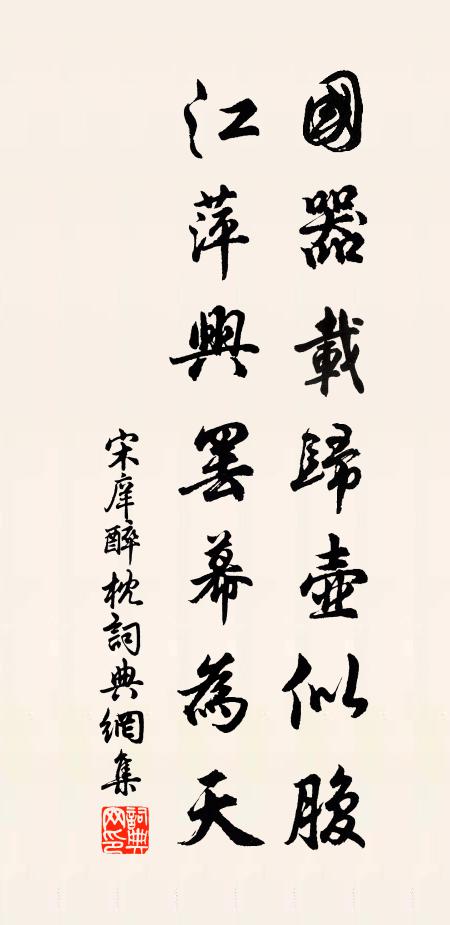 國器載歸壺似腹
江萍興罷幕為天
宋庠醉枕詞典網集
詞典網印